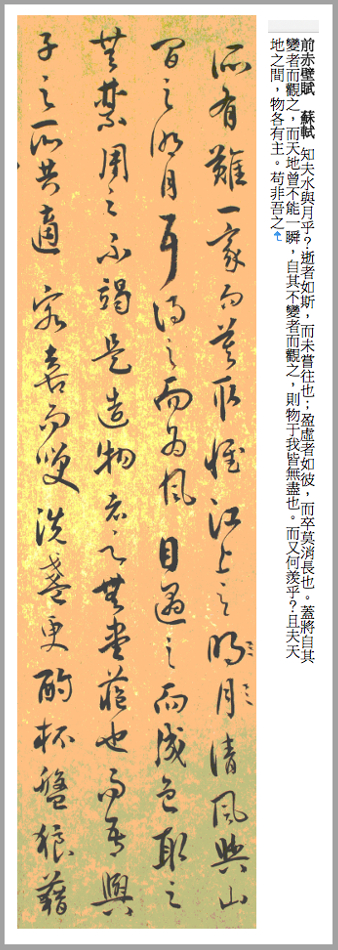 前赤壁賦　蘇軾　知夫水與月乎？逝者如斯，而未嘗往也；盈虛者如彼，而卒莫消長也。蓋將自其
變者而觀之，而天地曾不能一瞬，自其不變者而觀之，則物于我皆無盡也。而又何羨乎？且夫天
地之間，物各有主。苟非吾之
所有雖一豪而莫取惟江上之明月清風與山
間之明月耳得之而為風目遇之而成色取之
無禁用之不竭是造物者之無盡藏也而吾與
子之所共適客喜而笑洗盞更酌杯盤狼藉